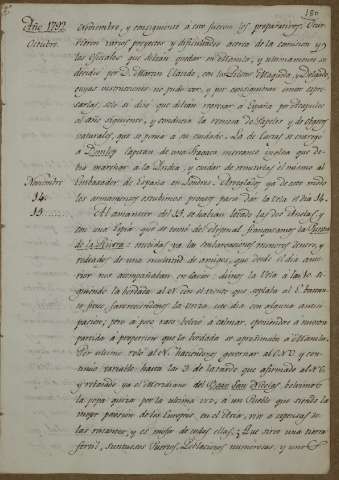 180
Año 1792
Octubre.
Noviembre, y consiguiente a esto fueron los preparativos. Ocur-
rieron varios proyectos y dificultades acerca de la comision y
los oficiales que debian quedar en Manila, y ultimamente se
decidio por D. Martin Olavide, con los Pilotos Maqueda, y Delgado,
cuyas instrucciones no pude ver, y por consiguiente omito expre-
sarlas, solo si diré que debian regresar a España por Acapulco
el año siguiente, y conducir la remesa de Papeles y de objetos
naturales, que se ponia a su cuidado. La de Cartas se encargó
a Capitan de una Fragata mercante inglesa que de-
bia marchar a la India, y cuidar de remitirlas él mismo al
Embaxador de España en Londres. Arreglados ya de este modo
Noviembre
14.
los armamentos estubimos prontos para dar la vela el dia 14.
15.
Al amanecer del 15. se habian levado las dos Anclas, y
con una Espia que se tomó del efugial franqueamos la Punta
de la : metidas ya las embarcaciones menores dentro, y
rodeados de una multitud de amigos, que desde el dia ante-
rior nos acompañaban en dimos la Vela a las 10. si-
guiendo la bordada al N con el viento que soplaba al E. bastan-
te fresco, favoreciendonos la virada este dia con alguna antici-
pacion; pero a poco rato bolvió a calmar, oponiendose a nuestra
partida a proporcion que la bordada se aproximaba a Manila.
Por ultimo roló al N. haciendonos governar al ONO. y con-
tinuó variable hasta las 3 de la tarde que afirmado al NE.
y rebasado ya el Meridiano del Baxo San Nicolas, bolvimos
la popa quizá por la ultima vez, a un Pueblo que siendo la
mejor posesion de los Europeos en el Asia, vive a expensas de
las restantes, y es mofa de todas ellas; Que sirve una tierra
fertil, suntuosos Puertos, Poblaciones numerosas, y una